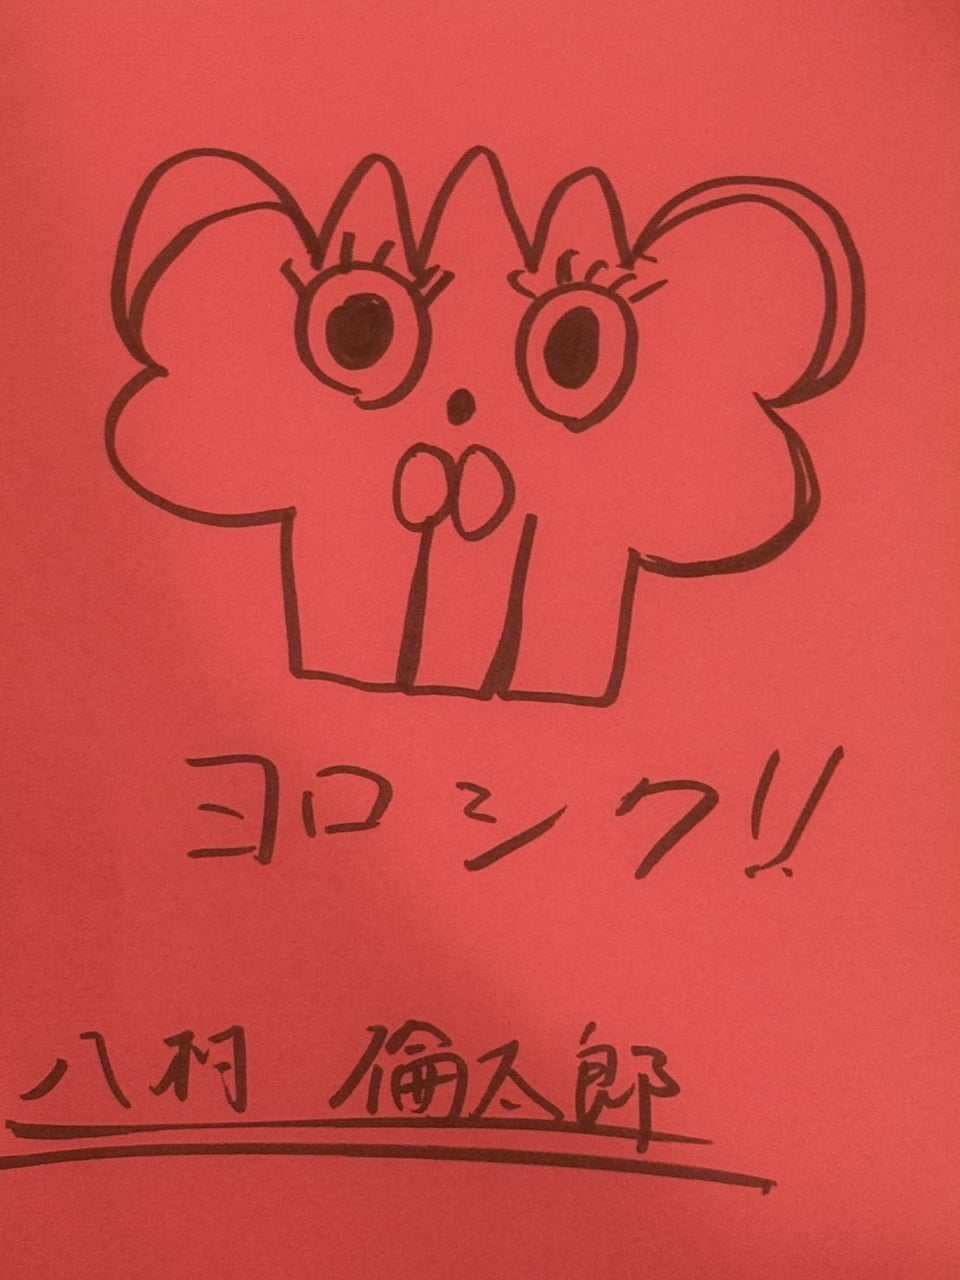 ヨロシク!!
八村 倫太郎